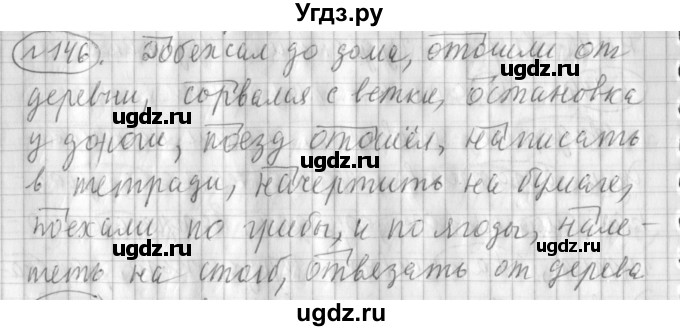 Угдз.ру
№146. Добежал до дома, отошли от
деревни, сорвался с ветки, остановка
ugdz.ru ugdz.ru
у дороги, поезд отошёл, написать
ugdz.ru
в тетради, начертить на бумаге,
ugdz.ru ugdz.ru
поехали по грибы, и по ягоды, нале-
ugdz.ru
теть на столб, отвязать от дерева
ugdz.ru ugdz.ru